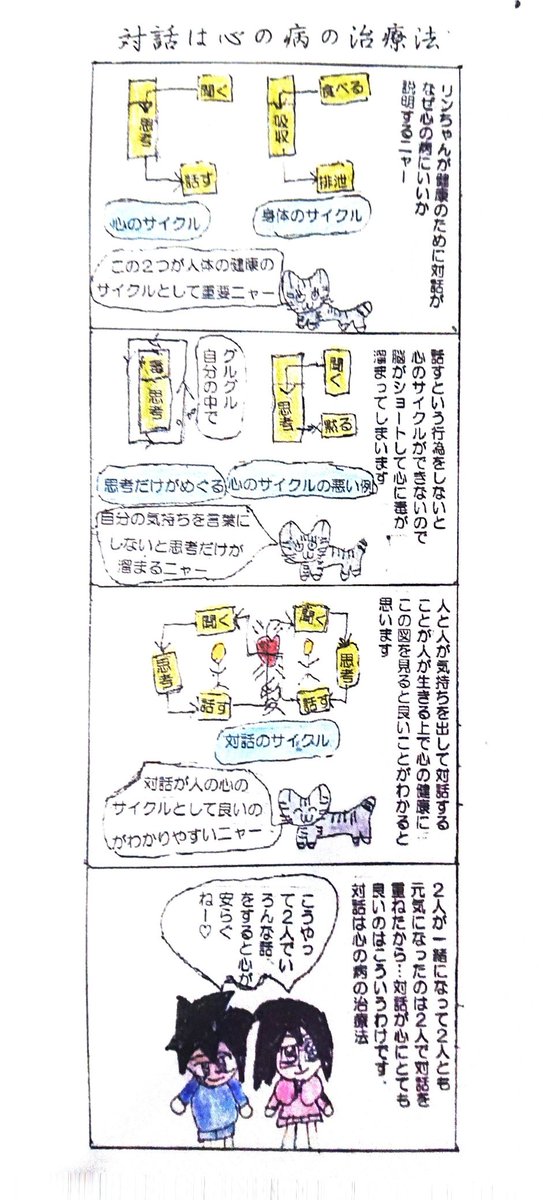 対話は心の病の治療法
リンちゃんが健康のために対話が
なぜ心の病にいいか
説明するニャー
食べる
吸収
排泄
身体のサイクル
聞く
思考
話す
心のサイクル
この2つが人体の健康の
サイクルとして重要ニャー
話すという行為をしないと
心のサイクルができないので
脳がショートして心に毒が
溜まってしまいます
聞く
思考
黙る
心のサイクルの悪い例
グルグル
自分の中で
毒
思考
思考だけがめぐる
自分の気持ちを言葉に
しないと思考だけが
溜まるニャー
人と人が気持ちを出して対話する
ことが人が生きる上で心の健康に
この図を見ると良いことがわかると
思います
聞く
思考
話す
聞く
思考
話す
対話のサイクル
対話が人の心の
サイクルとして良いの
がわかりやすいニャー
2人が一緒になって2人とも
元気になったのは2人で対話を
重ねたから…対話が心にとても
良いのはこういうわけです、
対話は心の病の治療法
こうやっ
て2人でい
ろんな話、
をすると心が
安らぐ
ねー♡